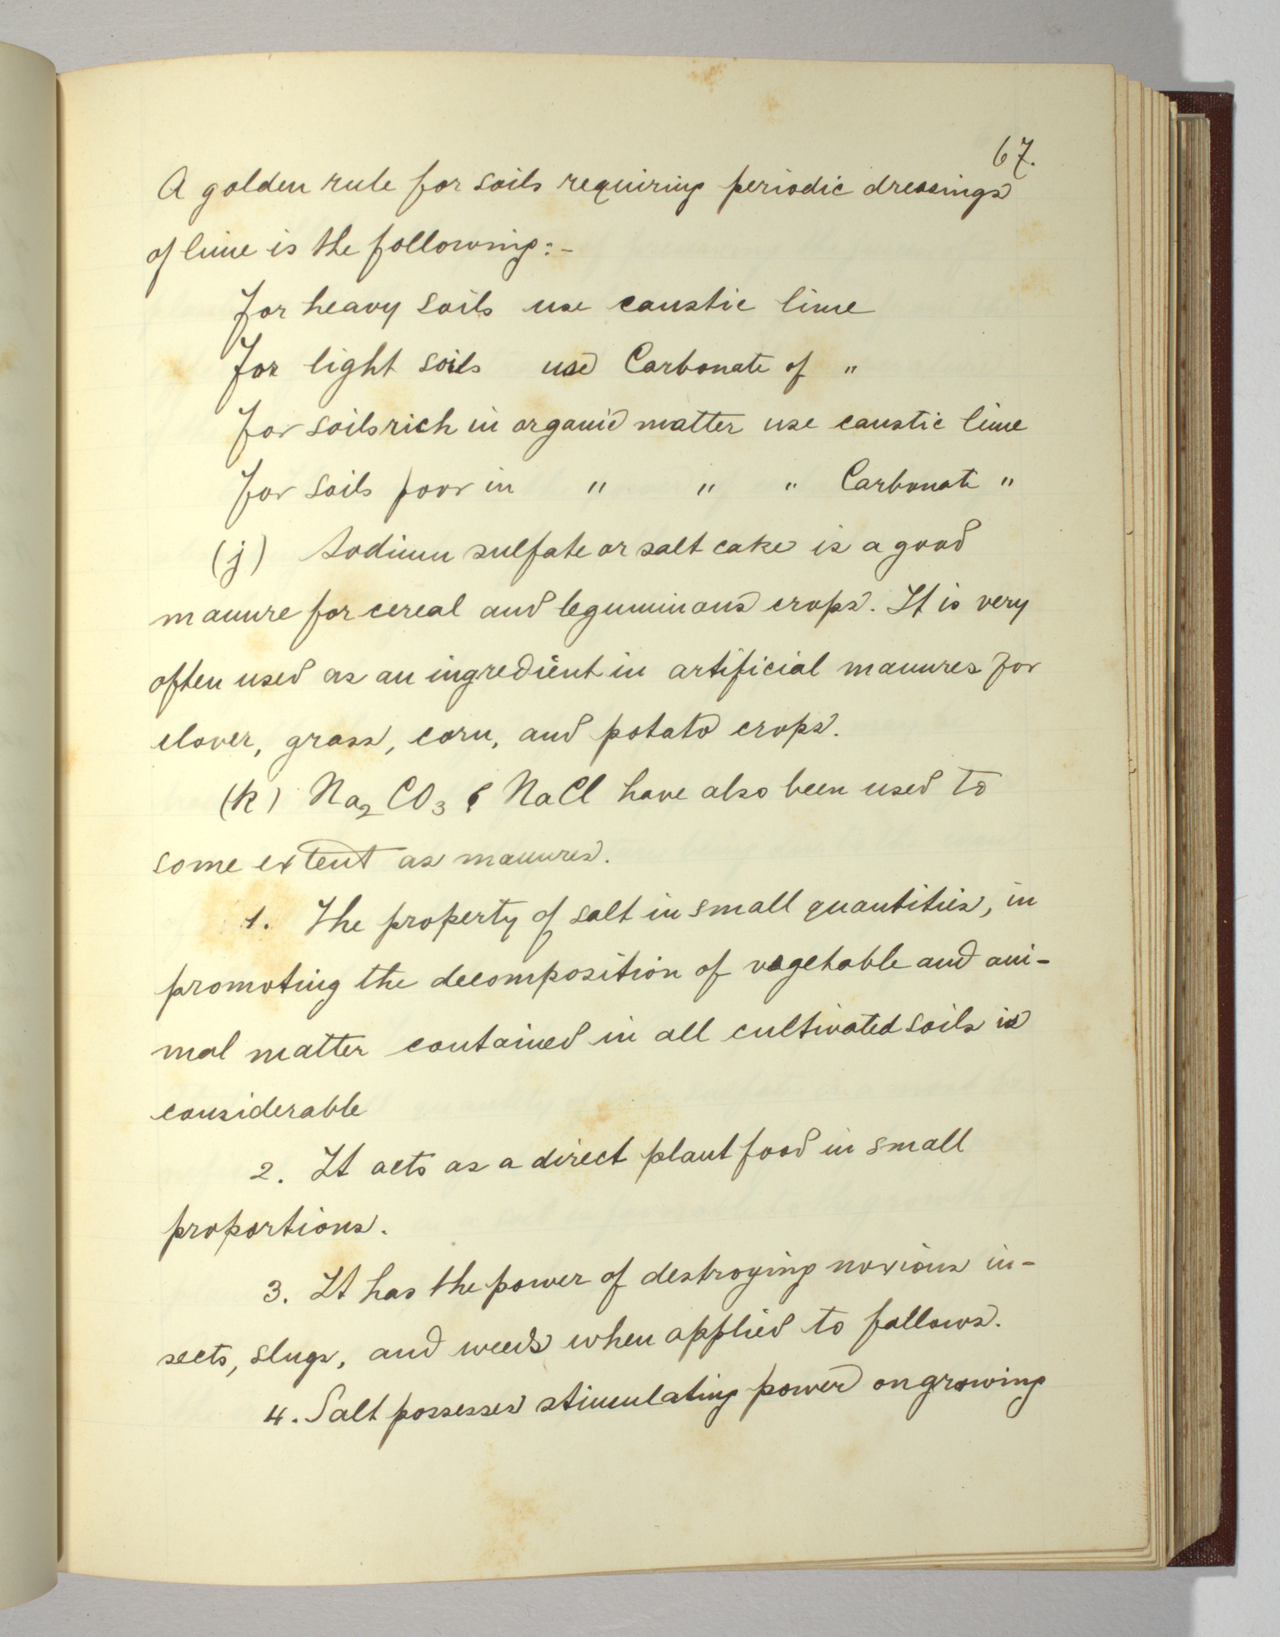 67.
A golden rule for soils requiring periodic dressings
of lime is the following:-
For heavy soils use caustic lime
For light soils use Carbonate of "
For soils rich in organic matter use caustic lime
For soils poor in " " " Carbonate "
(j) Sodium sulfate or salt cake is a good
manure for cereal and leguminous crops. It is very
often used as an ingredient in artificial manures for
clover, grass, corn, and potato crops.
(k) Na₂CO₃ & NaCl have also been used to
some extent as manures.
1. The property of salt in small quantities, in
promoting the decomposition of vegetable and ani-
mal matter contained in all cultivated soils is
considerable
2. It acts as a direct plant food in small
proportions.
3. It has the power of destroying noxious in-
sects, slugs, and weeds when applied to fallows.
4. Salt possesses stimulating power on growing